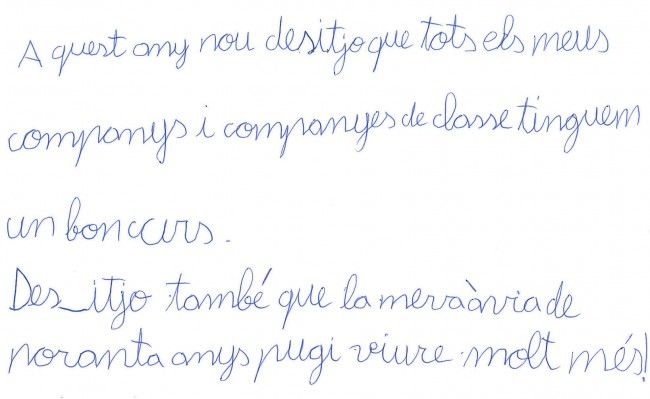 A quest any nou desitjo que tots els meus
companys i companyes de classe tinguem
un bon curs.
Des_itjo també que la meva àvia de
noranta anys pugi viure molt més!